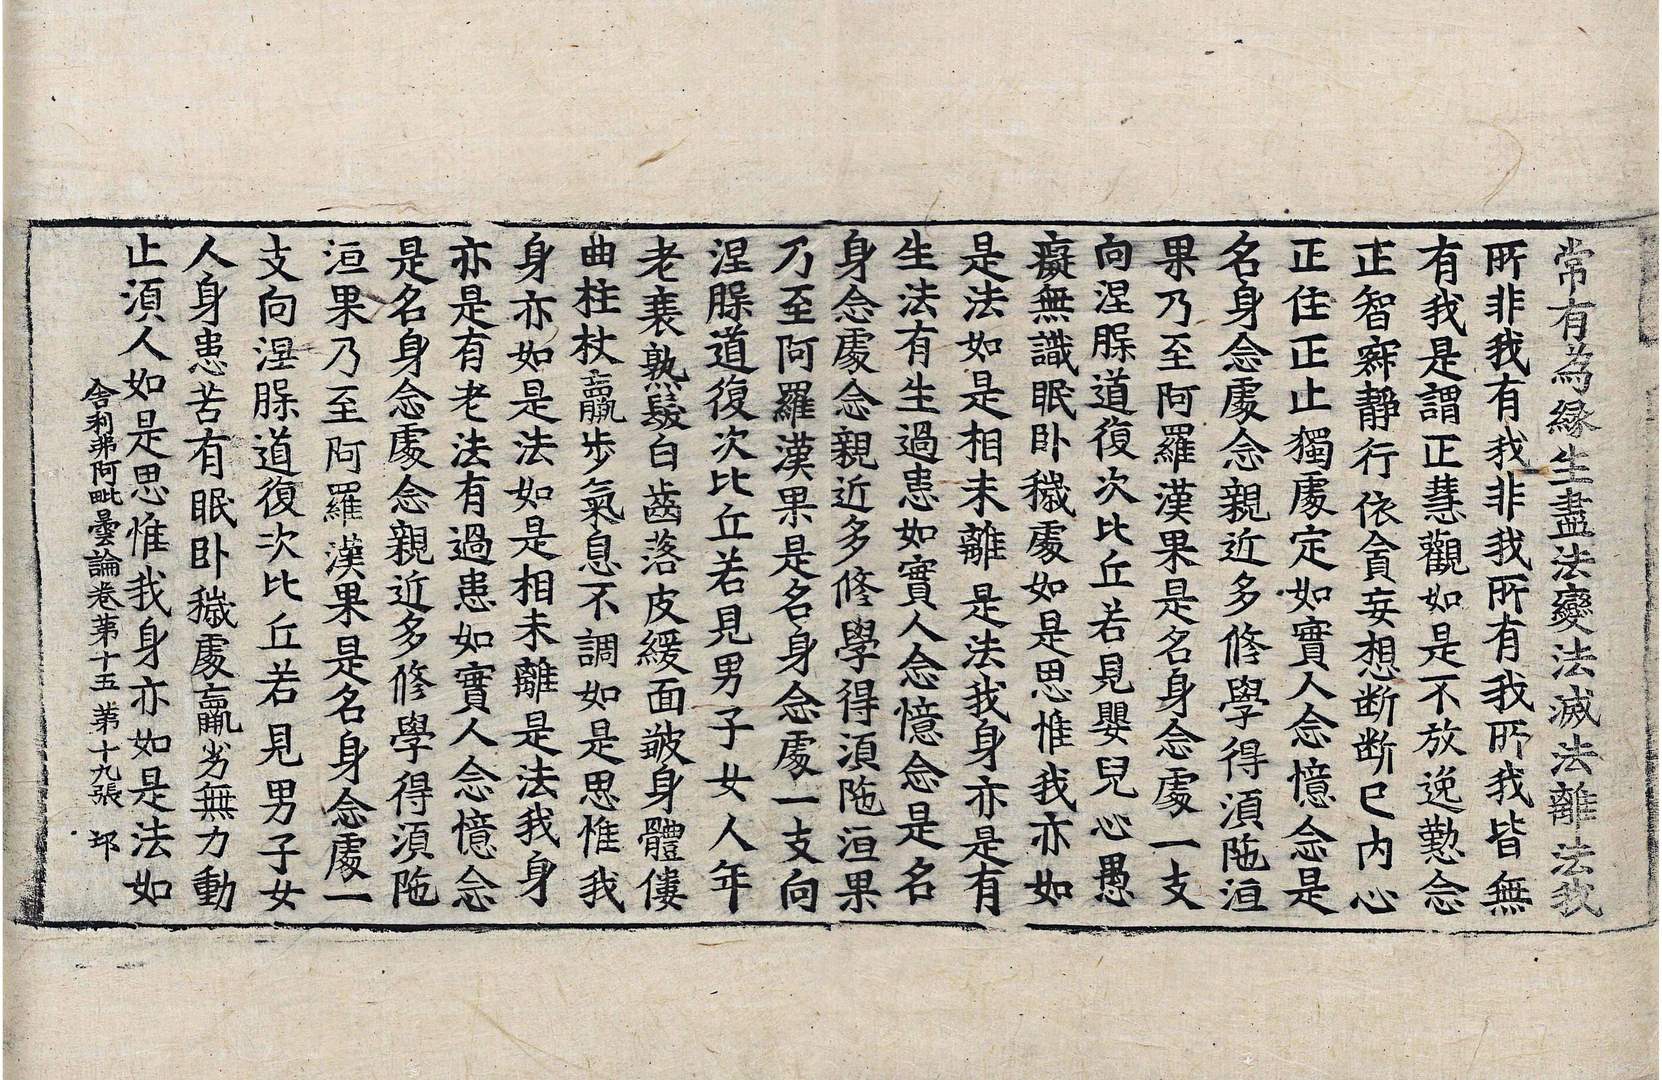 常有為緣生盡法變法滅法離法我
所非我有我非我所有我所我皆無
有我是謂正慧觀如是不放逸勤念
正智寂靜行依貪妄想断断已内心
正住正止獨處定如實人念憶念是
名身念處念親近多修學得湏陁洹
果乃至阿羅漢果是名身念處一支
向涅槃道復次比丘若見嬰兒心愚
癡無識眠卧穢處如是思惟我亦如
是法如是相未離是法我身亦是有
生法有生過患如實人念憶念是名
身念處念親近多修學得湏陁洹果
乃至阿羅漢果是名身念處一支向
涅槃道復次比丘若見男子女人年
老衰熟髮白齒落皮緩面皺身體僂
曲柱杖羸步氣息不調如是思惟我
身亦如是法如是相未離是法我身
亦是有老法有過患如實人念憶念
是名身念處念親近多修學得湏陁
洹果乃至阿羅漢果是名身念處一
支向涅槃道復次比丘若見男子女
人身患苦有眠卧穢處羸劣無力動
止湏人如是思惟我身亦如是法如
舍利弗阿毗曇論卷第十五 第十九張 㘬